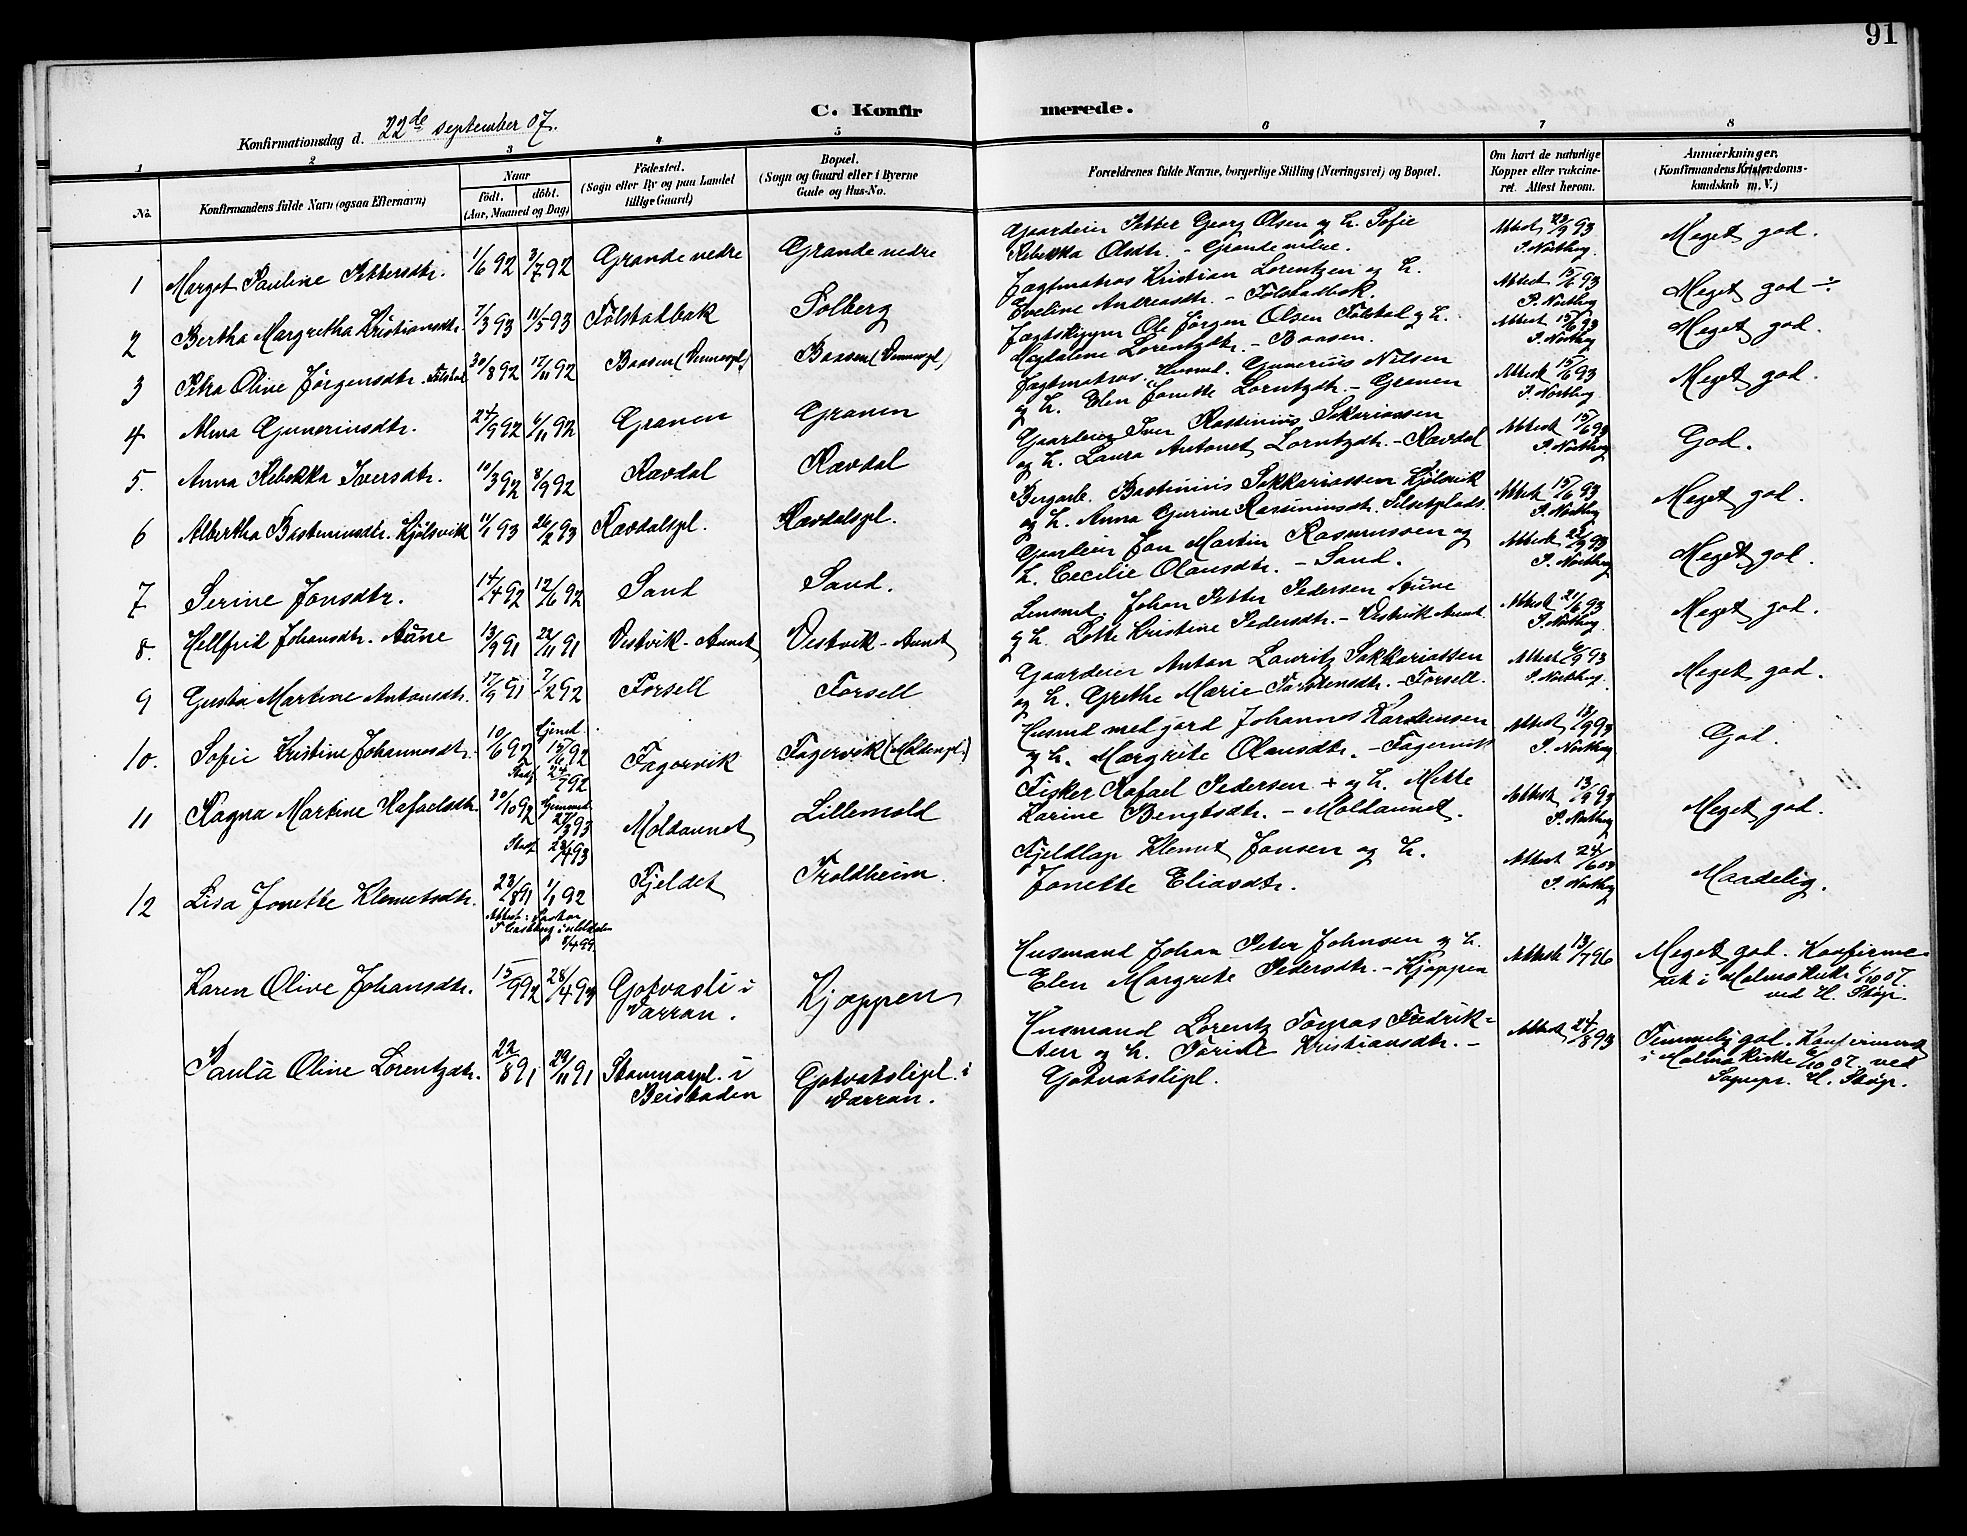 91
C. Konfirmerede.
Konfirmationsdag d. 22de september 07.
1 2 3 4 5 6 7 8
No. Konfirmandens fulde Navn (ogsaa Efternavn) Naar født. døbt. (Aar, Maaned og Dag) Fødested. (Sogn eller By og paa Landet tillige Gaard) Bopæl. (Sogn og Gaard eller i Byerne Gade og Hus-No. Forældrenes fulde Navne, borgerlige Stilling (Næringsvei) og Bopæl. Om havt de naturlige Kopper eller vakcineret. Attest herom. Anmærkninger. (Konfirmandens Kristendomskundskab m. V.)
1 Margot Pauline Pettersdtr. 1/6 92 3/7 92 Grande nedre Grande nedre Gaardeier Petter Georg Olsen og h. Sofie
Rebekka Olsdtr. - Grande nedre. Attest 23/9 93 P. Northug Meget god.
2 Bertha Margretha Kristiansdtr. 7/3 93 11/5 93 Følstadbak Solberg Jagtmatros Kristian Lorentzen og h.
Eveline Andreasdtr. - Følstadbak. Attest 15/6 93 P. Northug Meget god ÷
3 Petra Olive Jørgensdtr. Følstad 30/8 92 17/11 92 Baasen (Vennespl.) Baasen (Vennespl.) Jagtskipper Ole Jørgen Olsen Følstad og h.
Magdalena Lorentzdtr. - Baasen. Attest 15/6 93 P. Northug Meget god.
4 Alma Guneriusdtr. 24/9 92 6/11 92 Granen Granen Jagtmatros, Husmd. Gunerius Nilsen
og h. Elen Jonette Lorntzdtr. - Granen Attest 15/6 93 P. Northug Meget god.
5. Anna Rebekka Iversdtr. 10/3 92 8/9 92 Rævdal Rævdal Gaardeier Iver Rastinius Sakariassen
og h. Laura Antonet Lorntzdtr. - Rævdal Attest 15/6 93 P. Northug God.
6 Albertha Bastiniusdtr. Kjølsvik 11/1 93 26/2 93 Rævdalspl. Rævdalspl. Bergarb. Bastinius Sakkariassen Kjølsvik
og h. Anna Gurine Rasmiusdtr. Selsetplads. Attest 15/6 93 P. Northug Meget god.
7 Serine Jonsdtr. 14/4 92 12/6 92 Sand Sand. Gaardeier Jon Martin Rasmussen og
h. Cecilie Olausdtr. - Sand. Attest 23/9 93 P. Northug Meget god.
8. Hellfrid Johansdtr. Aune 13/9 91 22/11 91 Vestvik-Aunet Vestvik-Aunet Lensmd. Johan Petter Pedersen Aune
og h. Lotte Kristine Pedersdtr. - Vestvik Aunet Attest 21/6 93 P. Northug. Meget god.
9 Gusta Martine Antonsdtr. 17/9 91 7/2 92 Forsell Forsell Gaardeier Anton Lauritz Sakkariassen
og h. Grethe Marie Torstensdtr. - Forsell. Attest 6/9 93 P. Northug. Meget god.
10. Sofie Kristine Johannesdtr. 10/6 92 hjemd. 15/6 92 Stadf. 24/7 92 Fagervik Fagervik (Moldenpl.) Husmd med jord Johannes Karstensen
og h. Margrete Olausdtr. - Fagervik Attest 13/9 93 P. Northug God.
11 Ragna Martine Rafaelsdtr. 30/10 92 hjemmed. 27/3 93 Stadf. 23/4 93 Moldaunet Lillemold Fisker Rafael Pedersen + og h. Mette
Karine Bengtsdtr. - Moldaunet. Attest 13/9 93 P. Northug Meget god.
12 Lisa Jonette Klemetsdtr. 23/8 91 1/1 92 Fjeldet Troldheim. Fjeldlap Klemet Jonsen og h.
Jonette Eliasdtr. Attest 24/6 07 P. Northug Maadelig.
Karen Olive Johansdtr. 15/9 92 28/4 93 Gotvasli i Værran. Kjøppen Husmand Johan Peter Johnsen og h.
Elen Margrete Pedersdtr. - Kjøppen Attest 13/7 96 Meget god. Konfirmeret i Malmo Kirke 6/10 07. ved H. Sköp.
Paula Oline Lorentzdtr. 22/8 91 29/11 91 Stammespl. i Beistaden Gotvatslipl. i Værran. Husmand Lorentz Tomas Fredriksen og h. Torine Kristiansdtr. -
Gotvatslipl. Attest 24/8 93 Temmelig god. Konfirmeret i Malmo Kirke 6/10 07. ved Sognepr. H. Sköp.